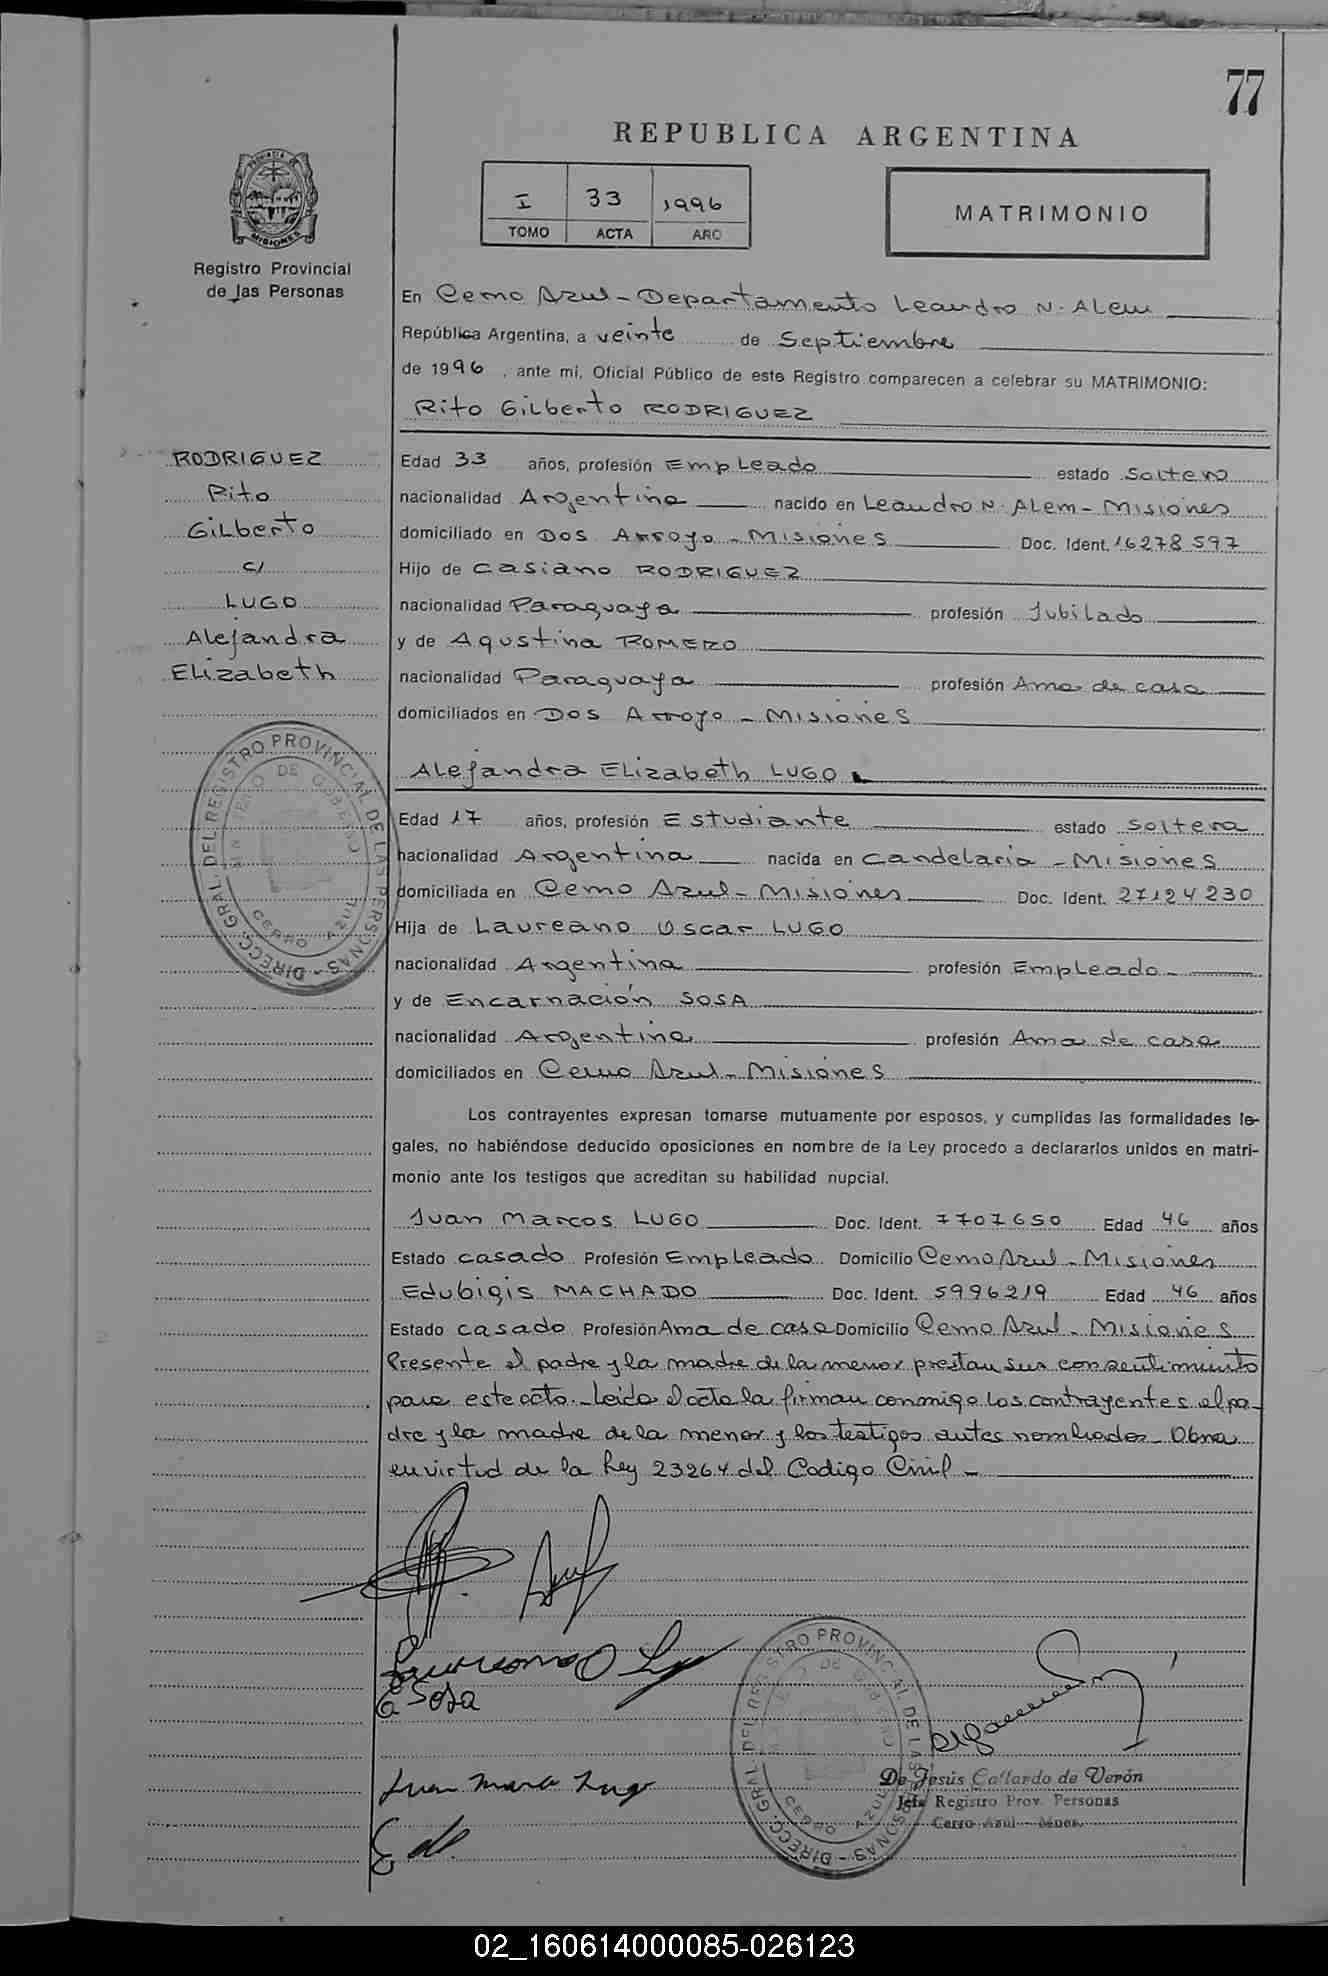 77
REPUBLICA ARGENTINA
PROVINCIA DE
MISIONES
Registro Provincial
de las Personas
I 33 1996
TOMO ACTA AÑO
MATRIMONIO
En Cerro Azul - Departamento Leandro N. Alem
República Argentina, a veinte de Septiembre
de 1996, ante mi, Oficial Público de este Registro comparecen a celebrar su MATRIMONIO:
Rito Gilberto RODRIGUEZ
RODRIGUEZ
Rito
Gilberto
c/
LUGO
Alejandra
Elizabeth
Edad 33 años, profesión Empleado estado Soltero
nacionalidad Argentina nacido en Leandro N. Alem - Misiones
domiciliado en Dos Arroyo - Misiones Doc. Ident. 16278597
Hijo de Casiano RODRIGUEZ
nacionalidad Paraguaya profesión Jubilado
y de Agustina ROMERO
nacionalidad Paraguaya profesión Ama de casa
domiciliados en Dos Arroyo - Misiones
Alejandra Elizabeth LUGO
Edad 17 años, profesión Estudiante estado Soltera
nacionalidad Argentina nacida en Candelaria - Misiones
domiciliada en Cerro Azul - Misiones Doc. Ident. 27124230
Hija de Laureano Oscar LUGO
nacionalidad Argentina profesión Empleado
y de Encarnación SOSA
nacionalidad Argentina profesión Ama de casa
domiciliados en Cerro Azul - Misiones
DIRECC. GRAL. DEL REGISTRO PROVINCIAL DE LAS PERSONAS
MINISTERIO DE GOBIERNO
CERRO AZUL
Los contrayentes expresan tomarse mutuamente por esposos, y cumplidas las formalidades le-
gales, no habiéndose deducido oposiciones en nombre de la Ley procedo a declararlos unidos en matri-
monio ante los testigos que acreditan su habilidad nupcial.
Juan Marcos LUGO Doc. Ident. 7707650 Edad 46 años
Estado casado Profesión Empleado Domicilio Cerro Azul - Misiones
Edubigis MACHADO Doc. Ident. 5996219 Edad 46 años
Estado casado Profesión Ama de casa Domicilio Cerro Azul - Misiones
Presente el padre y la madre de la menor prestan sus consentimiento
para este acto. Leida el acta la firman conmigo los contrayentes el pa-
dre y la madre de la menor y los testigos antes nombrados - Obra
en virtud de la Ley 23264 del Codigo Civil -
E Sosa
Juan Marco Lugo
DIRECC. GRAL. DEL REGISTRO PROVINCIAL DE LAS PERSONAS
CERRO AZUL
De Jesús Gallardo de Verón
Jefe Registro Prov. Personas
Cerro Azul - Mnes.
02_160614000085-026123